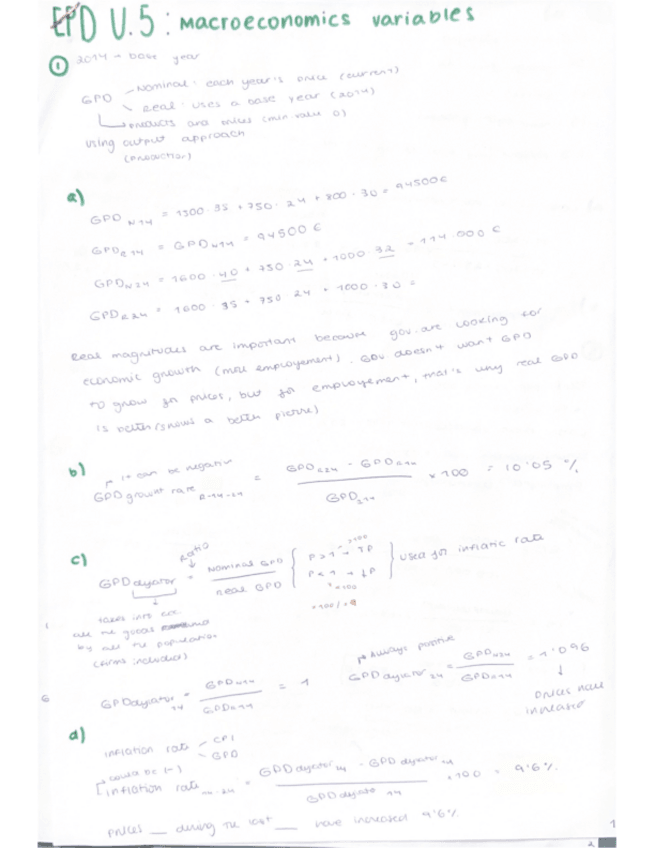 EPD U.5: Macroeconomics variables
① 2014 → base year
GPD
Nominal: each year's price (current)
Real: uses a base year (2014)
products and prices (min. value 0)
using output approach
(production)
a)
GPD N14 = 1300 · 35 + 750 · 24 + 800 · 30 = 94500 €
GPD R14 = GPD N14 = 94500 €
GPD N24 = 1600 · 40 + 750 · 24 + 1000 · 32 = 114.000 €
GPD R24 = 1600 · 35 + 750 · 24 + 1000 · 30 =
Real magnitudes are important because gov. are looking for
economic growth (more employement). Gov doesn't want GPD
to grow for prices, but for employement, that's why real GPD
is better (shows a better picture)
b)
it can be negative
GPD growth rate R-14-24 = GPD R24 - GPD R14 / GPD R14 × 100 = 10'05 %
c)
ratio
GPD deflator = Nominal GPD / real GPD
P > 1 → ↑P
P < 1 → ↓P
used for inflation rate
takes into acc.
all the goods
by all the population
(firms included)
GPD deflator 14 = GPD N14 / GPD R14 = 1
Always positive
GPD deflator 24 = GPD N24 / GPD R24 = 1'096
prices have
increased
d)
inflation rate
CPI
GPD
could be (-)
inflation rate 14-24 = GPD deflator 24 - GPD deflator 14 / GPD deflator 14 · 100 = 9'6%
prices __ during the last __ have increased 9'6%
1
2